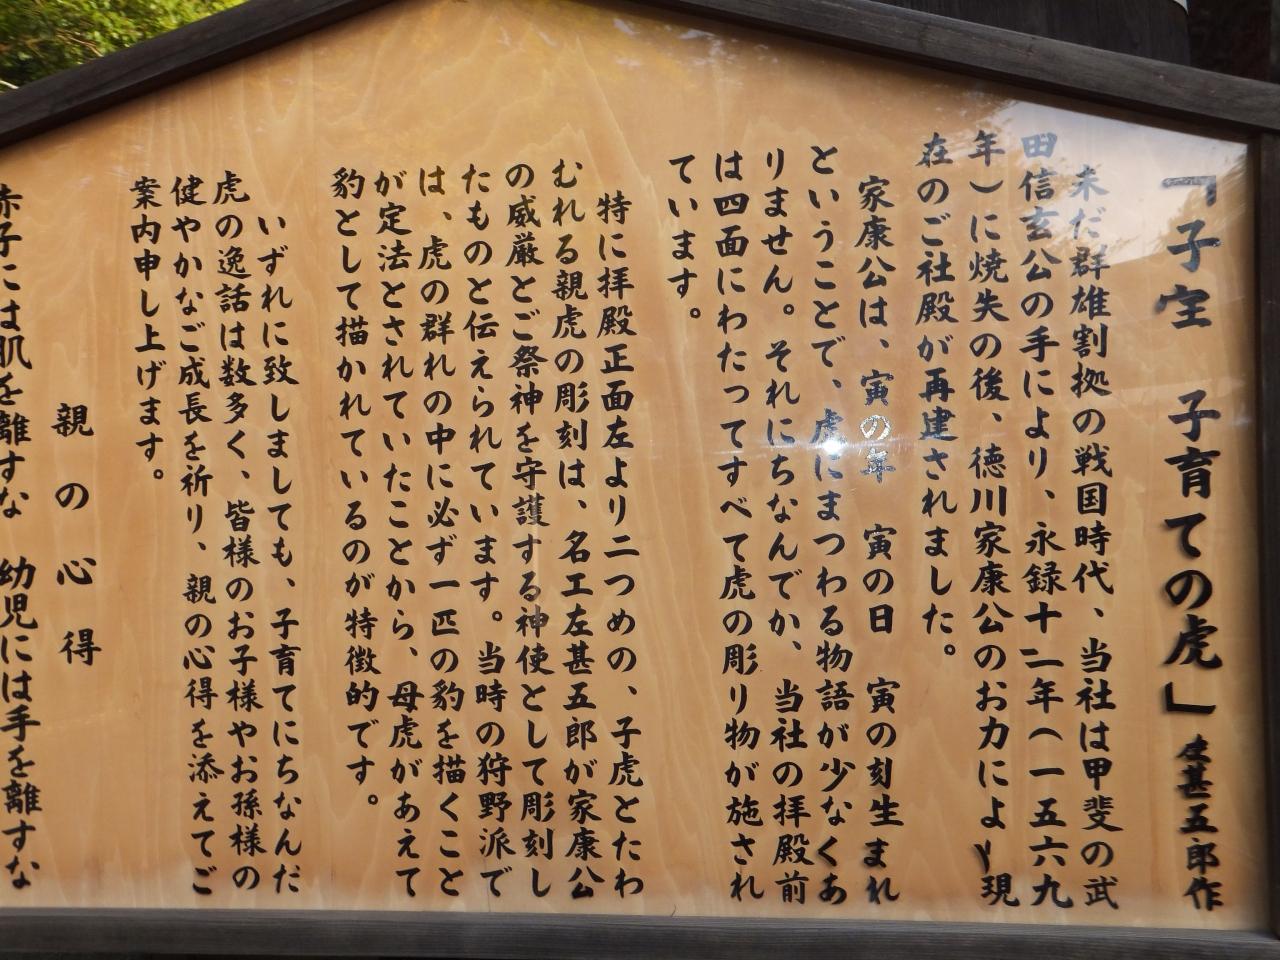 「子宝　子育ての虎」左甚五郎作
未だ群雄割拠の戦国時代、当社は甲斐の武
田信玄公の手により、永録十二年(一五六九
年)に焼失の後、徳川家康公のお力により現
在のご社殿が再建されました。
家康公は、寅の年　寅の日　寅の刻生まれ
ということで、虎にまつわる物語が少なくあ
りません。それにちなんでか、当社の拝殿前
は四面にわたってすべて虎の彫り物が施され
ています。
特に拝殿正面左より二つめの、子虎とたわ
むれる親虎の彫刻は、名工左甚五郎が家康公
の威厳とご祭神を守護する神使として彫刻し
たものと伝えられています。当時の狩野派で
は、虎の群れの中に必ず一匹の豹を描くこと
が定法とされていたことから、母虎があえて
豹として描かれているのが特徴的です。
いずれに致しましても、子育てにちなんだ
虎の逸話は数多く、皆様のお子様やお孫様の
健やかなご成長を祈り、親の心得を添えてご
案内申し上げます。
親の心得
赤子には肌を離すな　幼児には手を離すな